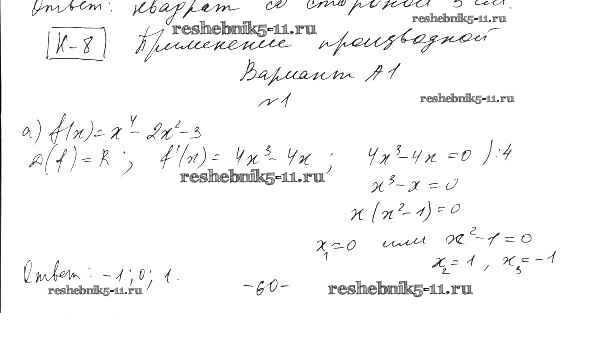 Ответ: квадрат со стороной 5 см.
reshebnik5-11.ru
reshebnik5-11.ru
К-8 Применение производной
Вариант А1
№1
reshebnik5-11.ru
а) f(x)=x⁴-2x²-3
D(f)=R; f'(x)=4x³-4x; 4x³-4x=0 ):4
reshebnik5-11.ru
x³-x=0
x(x²-1)=0
x₁=0 или x²-1=0
x₂=1, x₃=-1
Ответ: -1; 0; 1.
-60-
reshebnik5-11.ru
reshebnik5-11.ru